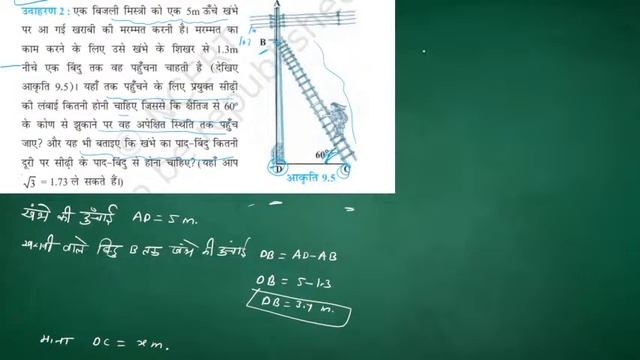 उदाहरण 2 : एक बिजली मिस्त्री को एक 5m ऊँचे खंभे
पर आ गई खराबी की मरम्मत करनी है। मरम्मत का
काम करने के लिए उसे खंभे के शिखर से 1.3m
नीचे एक बिंदु तक वह पहुँचना चाहती है (देखिए
आकृति 9.5)। यहाँ तक पहुँचने के लिए प्रयुक्त सीढ़ी
की लंबाई कितनी होनी चाहिए जिससे कि क्षैतिज से 60°
के कोण से झुकाने पर वह अपेक्षित स्थिति तक पहुँच
जाए? और यह भी बताइए कि खंभे का पाद-बिंदु कितनी
दूरी पर सीढ़ी के पाद-बिंदु से होना चाहिए? (यहाँ आप
√3 = 1.73 ले सकते हैं।)
A
B
60°
D
C
आकृति 9.5
खंभे की ऊँचाई AD = 5 m.
खराबी वाले बिंदु B तक खंभे की ऊंचाई DB = AD-AB
DB = 5-1.3
DB = 3.7 m.
माना DC = x m.